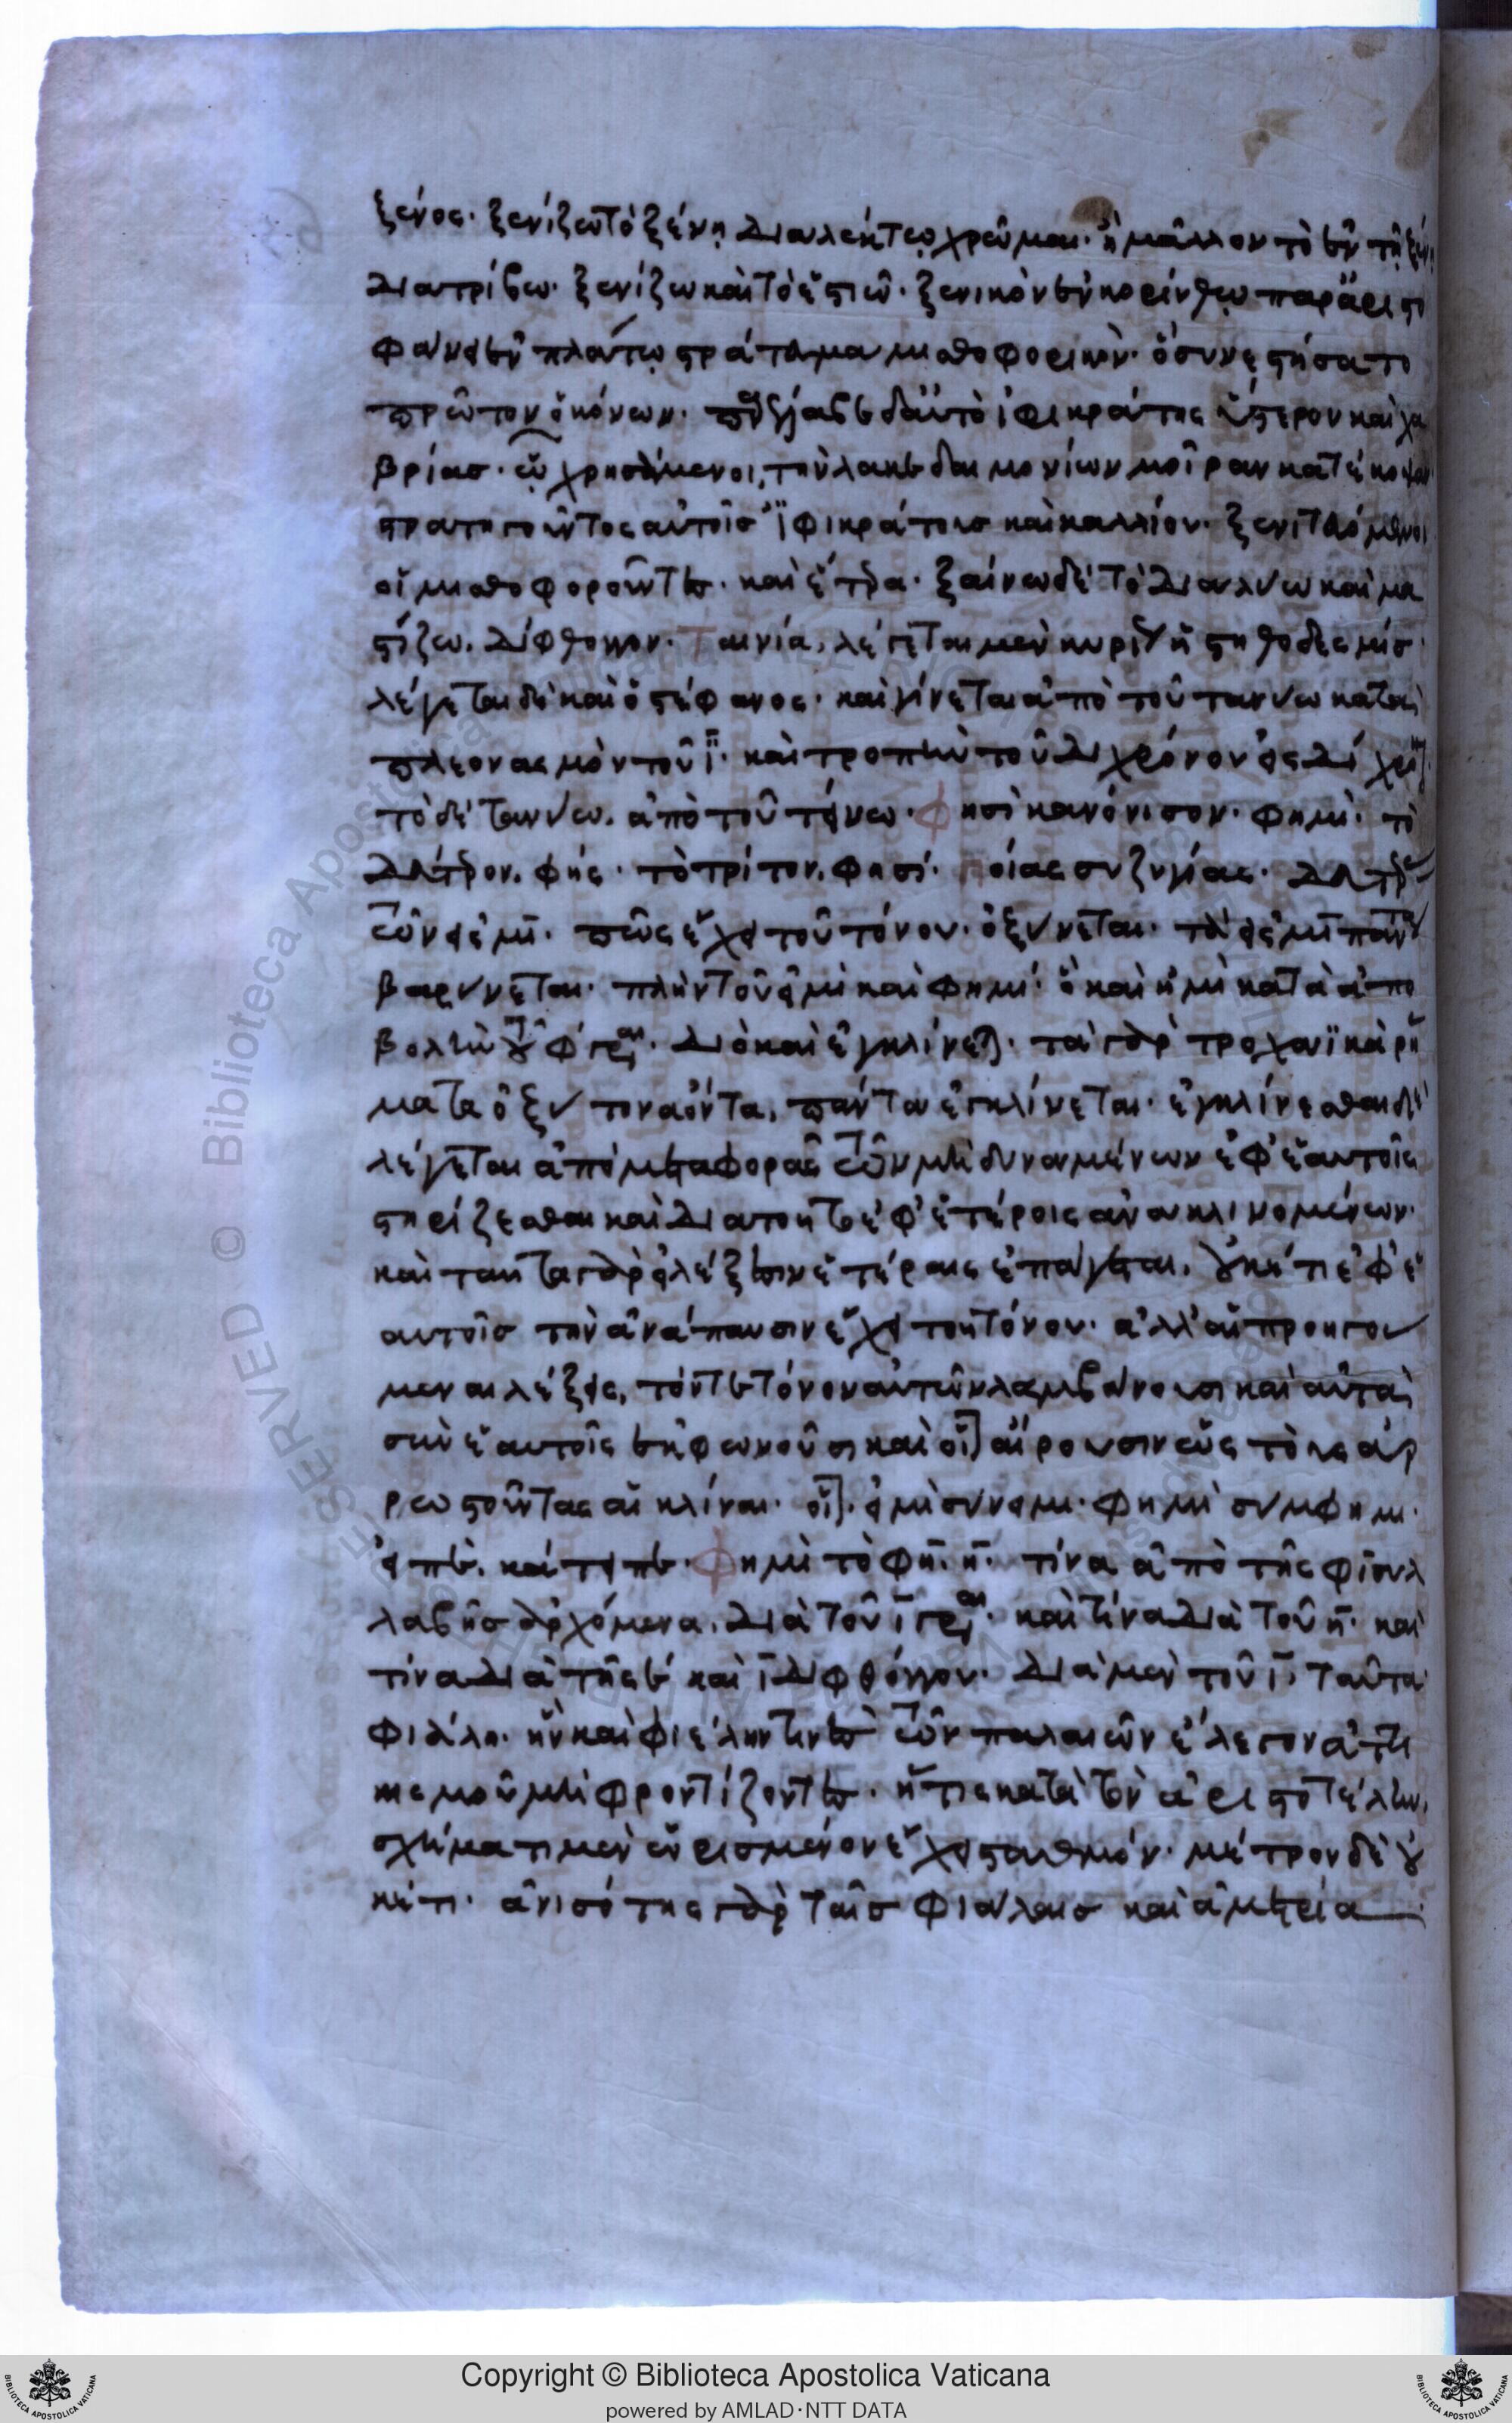 ξένος· ξενίζω τὸ ξένῃ διαλέκτῳ χρῶμαι· ἢ μᾶλλον τὸ ἐν τῇ ξένῃ
διατρίβω· ξενίζω καὶ τὸ ἑστιῶ· ξενικὸν ἐν κορίνθῳ παρ' ἀριστο
φάνει ἐν πλούτῳ στράτευμα μισθοφορικὸν· ὃ συνεστήσατο
πρῶτον κόνων· αὐτὸ ἰφικράτης ὕστερον καὶ χα
βρίας· ᾧ χρησάμενοι, τὴν λακεδαιμονίων μοῖραν κατέκοψαν
στρατηγοῦντος αὐτοῖς ἰφικράτους καὶ καλλίου· ξενιτευόμενοι
οἱ μισθοφοροῦντες· καὶ ἕτερα· ξαίνω δὲ τὸ διαλύω καὶ μα
στίζω. δίφθογγον· Ταινία, λέγεται μὲν κυρίως ἡ στηθοδεσμίς·
λέγεται δὲ καὶ ὁ στέφανος· καὶ γίνεται ἀπὸ τοῦ τανύω κατὰ
πλεονασμὸν τοῦ ϊ· καὶ τροπὴν τοῦ διχρόνου εἰς δίχρονον
τὸ δὲ τανύω. ἀπὸ τοῦ τείνω· Φησὶ κανόνισον· φημὶ· τὸ
δεύτερον. φής· τὸ τρίτον. φησί· ποίας συζυγίας· δευτέρας
τῶν εἰς μι· πῶς ἔχει τοῦ τόνου· ὀξύνεται· τὰ εἰς μι πάντα
βαρύνεται· πλὴν τοῦ εἰμὶ καὶ φημί· ὃ καὶ ἠμὶ κατὰ ἀπο
βολὴν τοῦ φ γράφεται· διὸ καὶ ἐγκλίνεται· τὰ γὰρ τροχαϊκὰ ῥή
ματα ὀξύτονα ὄντα, πάντα ἐγκλίνεται· ἐγκλίνεσθαι δὲ
λέγεται ἀπὸ μεταφορᾶς τῶν μὴ δυναμένων ἐφ' ἑαυτοῖς
στηρίζεσθαι καὶ διατοῦτο ἐφ' ἑτέροις ἀνακλινομένων·
καὶ ταῦτα γὰρ λέξεσιν ἑτέραις ἐπάγεται, οὐκέτι ἐφ' ἑ
αυτοῖς τὴν ἀνάπαυσιν ἔχει τοῦ τόνου· ἀλλ' αἱ προηγού
μεναι λέξεις, τόν τε τόνον αὐτῶν λαμβάνουσι καὶ αὐτὰ
σὺν ἑαυτοῖς ἐκφωνοῦσι καὶ αἴρουσιν ὡς τοὺς ἀρ
ρωστοῦντας αἱ κλίναι· οἷον· εἰμὶ σύνειμι· φημὶ σύμφημι·
εἰπέ. καί τειπε· Φημὶ τὸ φη η· τίνα ἀπὸ τῆς φι συλ
λαβῆς ἀρχόμενα, διὰ τοῦ ϊ γράφεται· καὶ τίνα διὰ τοῦ η· καὶ
τίνα διὰ τῆς ε καὶ ϊ διφθόγγου· διὰ μὲν τοῦ ϊ ταῦτα·
φιάλη· ἣν καὶ φιέλην τινὲς τῶν παλαιῶν ἔλεγον ἀττι
κισμοῦ μὴ φροντίζοντες· ἥτις κατὰ τὸν ἀριστοτέλην,
σχήματι μὲν ὡρισμένον ἔχει σταθμόν· μέτρον δὲ οὐ
κέτι· ἀνισότης γὰρ ταῖς φιάλαις καὶ ἀμετρία
Copyright © Biblioteca Apostolica Vaticana
powered by AMLAD·NTT DATA